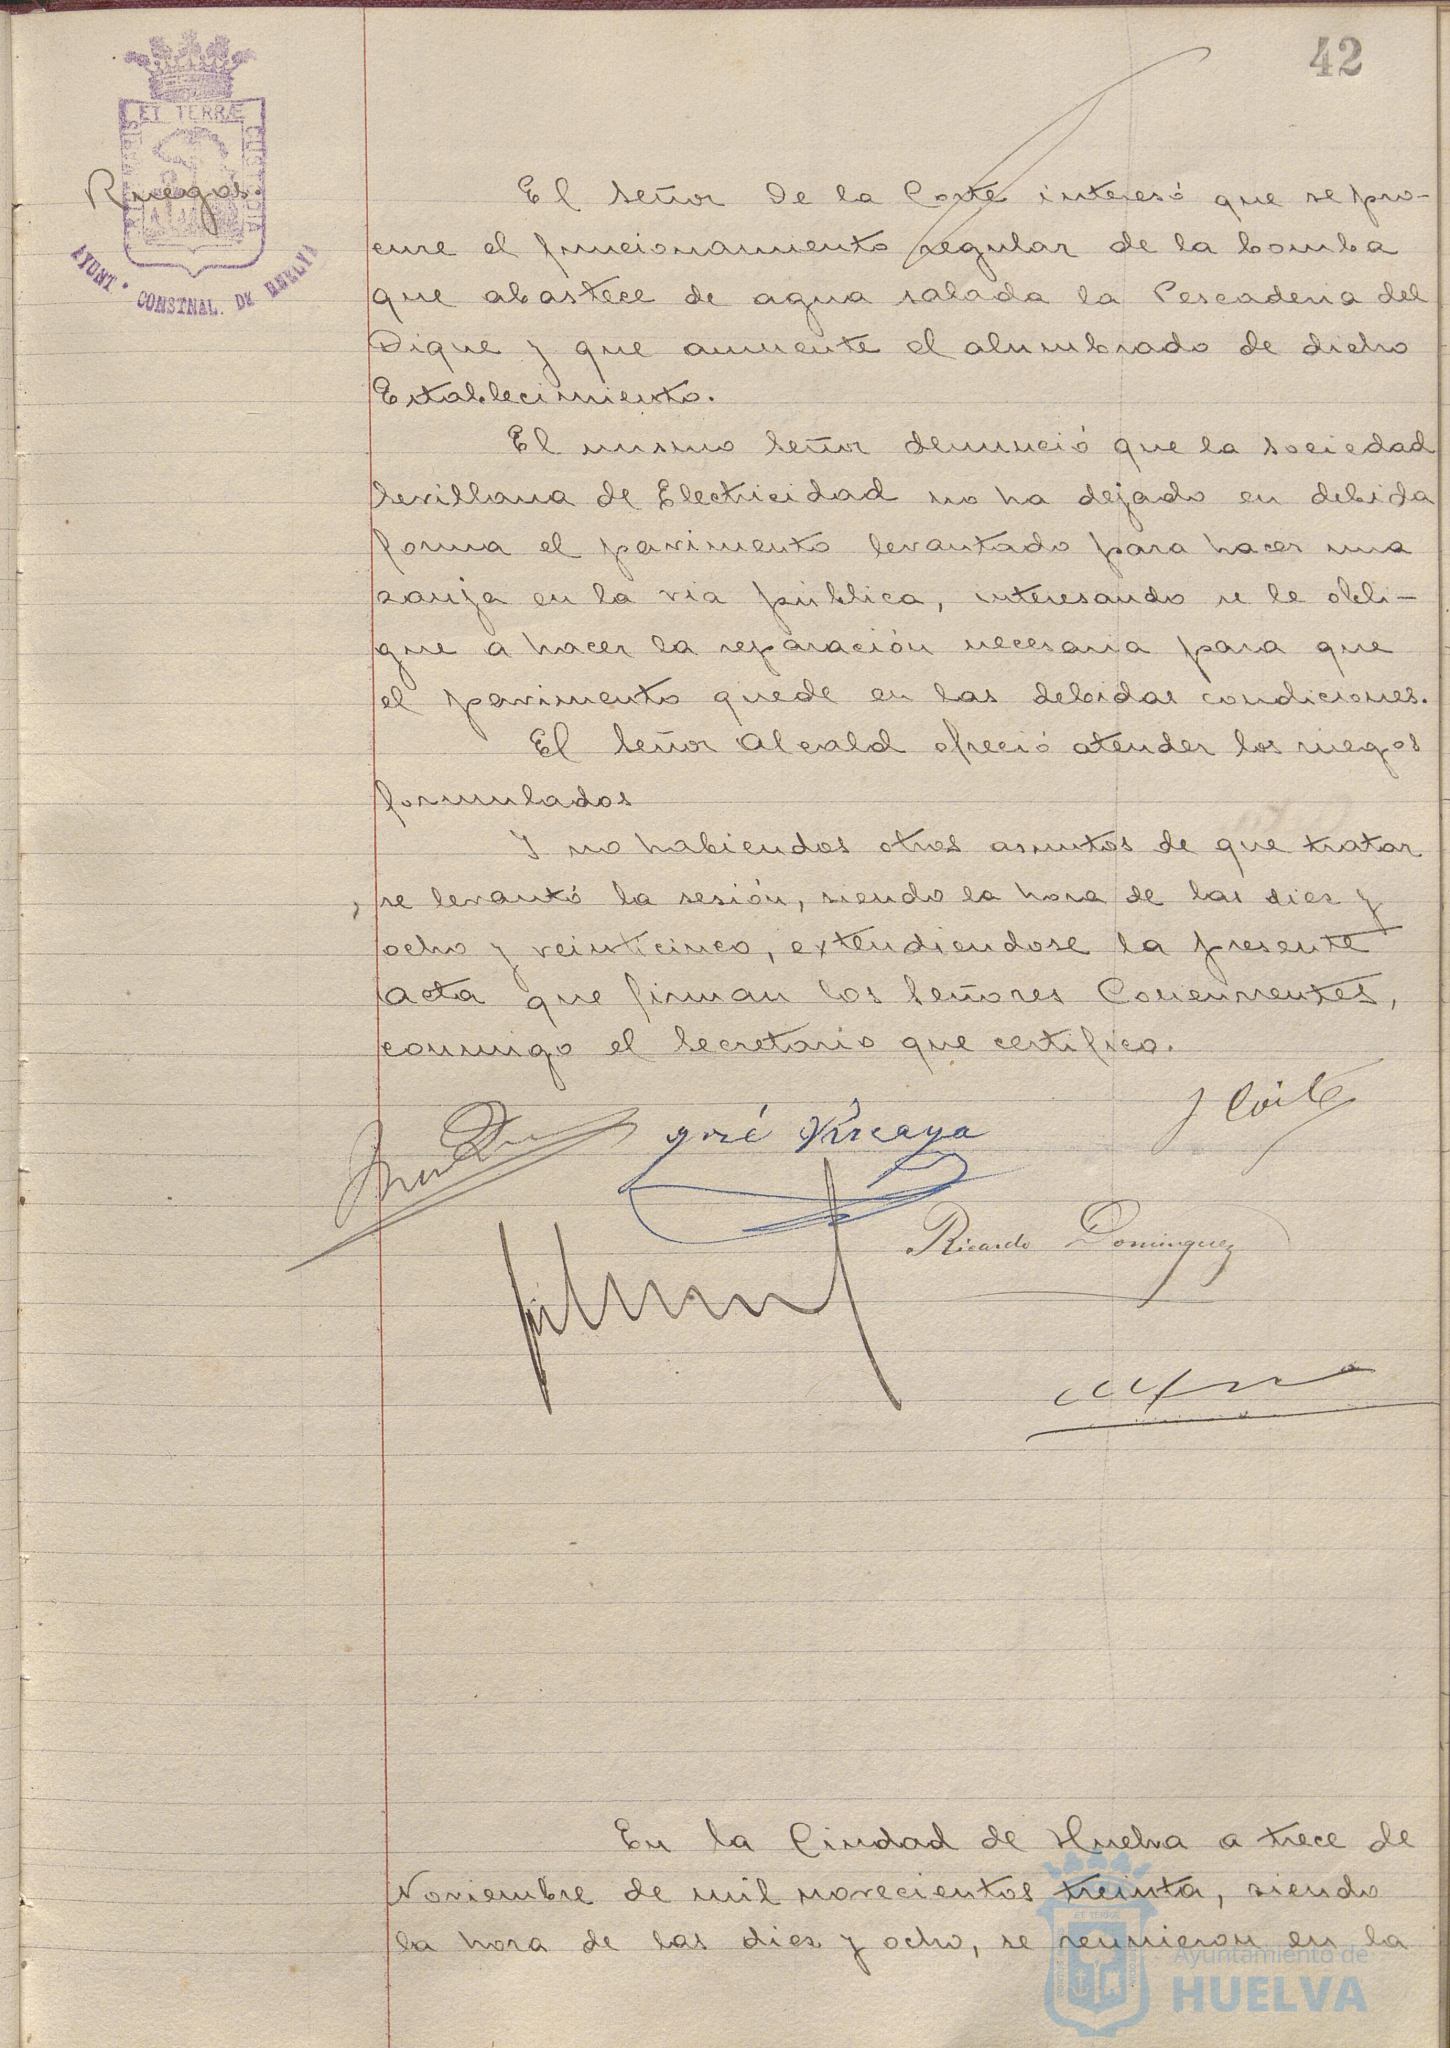 42
ET TERRÆ
AYUNT. CONSTNAL. DE HUELVA
Ruegos.
El Señor De la Corte interesó que se pro-
cure el funcionamiento regular de la bomba
que abastece de agua salada la Pescaderia del
Dique y que aumente el alumbrado de dicho
Establecimiento.
El mismo Señor denunció que la Sociedad
Sevillana de Electricidad no ha dejado en debida
forma el pavimento levantado para hacer una
zanja en la via pública, interesando se le obli-
gue a hacer la reparación necesaria para que
el pavimento quede en las debidas condiciones.
El Señor Alcald ofreció atender los ruegos
formulados
Y no habiendos otros asuntos de que tratar
se levantó la sesión, siendo la hora de las diez y
ocho y veinticinco, extendiendose la presente
acta que firman los Señores Concurrentes,
conmigo el Secretario que certifico.
J Corte
José Vizcaya
Ricardo Dominguez
En la Ciudad de Huelva a trece de
Noviembre de mil novecientos treinta, siendo
la hora de las diez y ocho, se reunieron en la
Ayuntamiento de
HUELVA